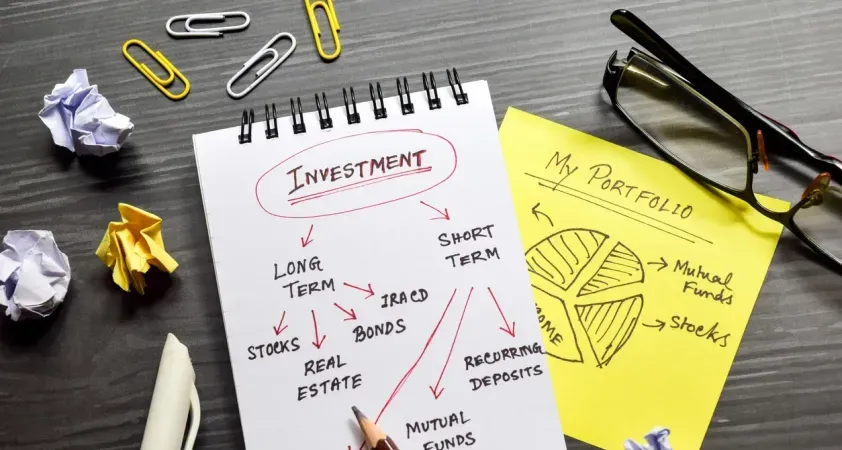 INVESTMENT
LONG
TERM
SHORT
TERM
STOCKS
REAL
ESTATE
BONDS
IRACD
MUTUAL
FUNDS
RECURRING
DEPOSITS
My PORTFOLIO
Mutual
Funds
Stocks